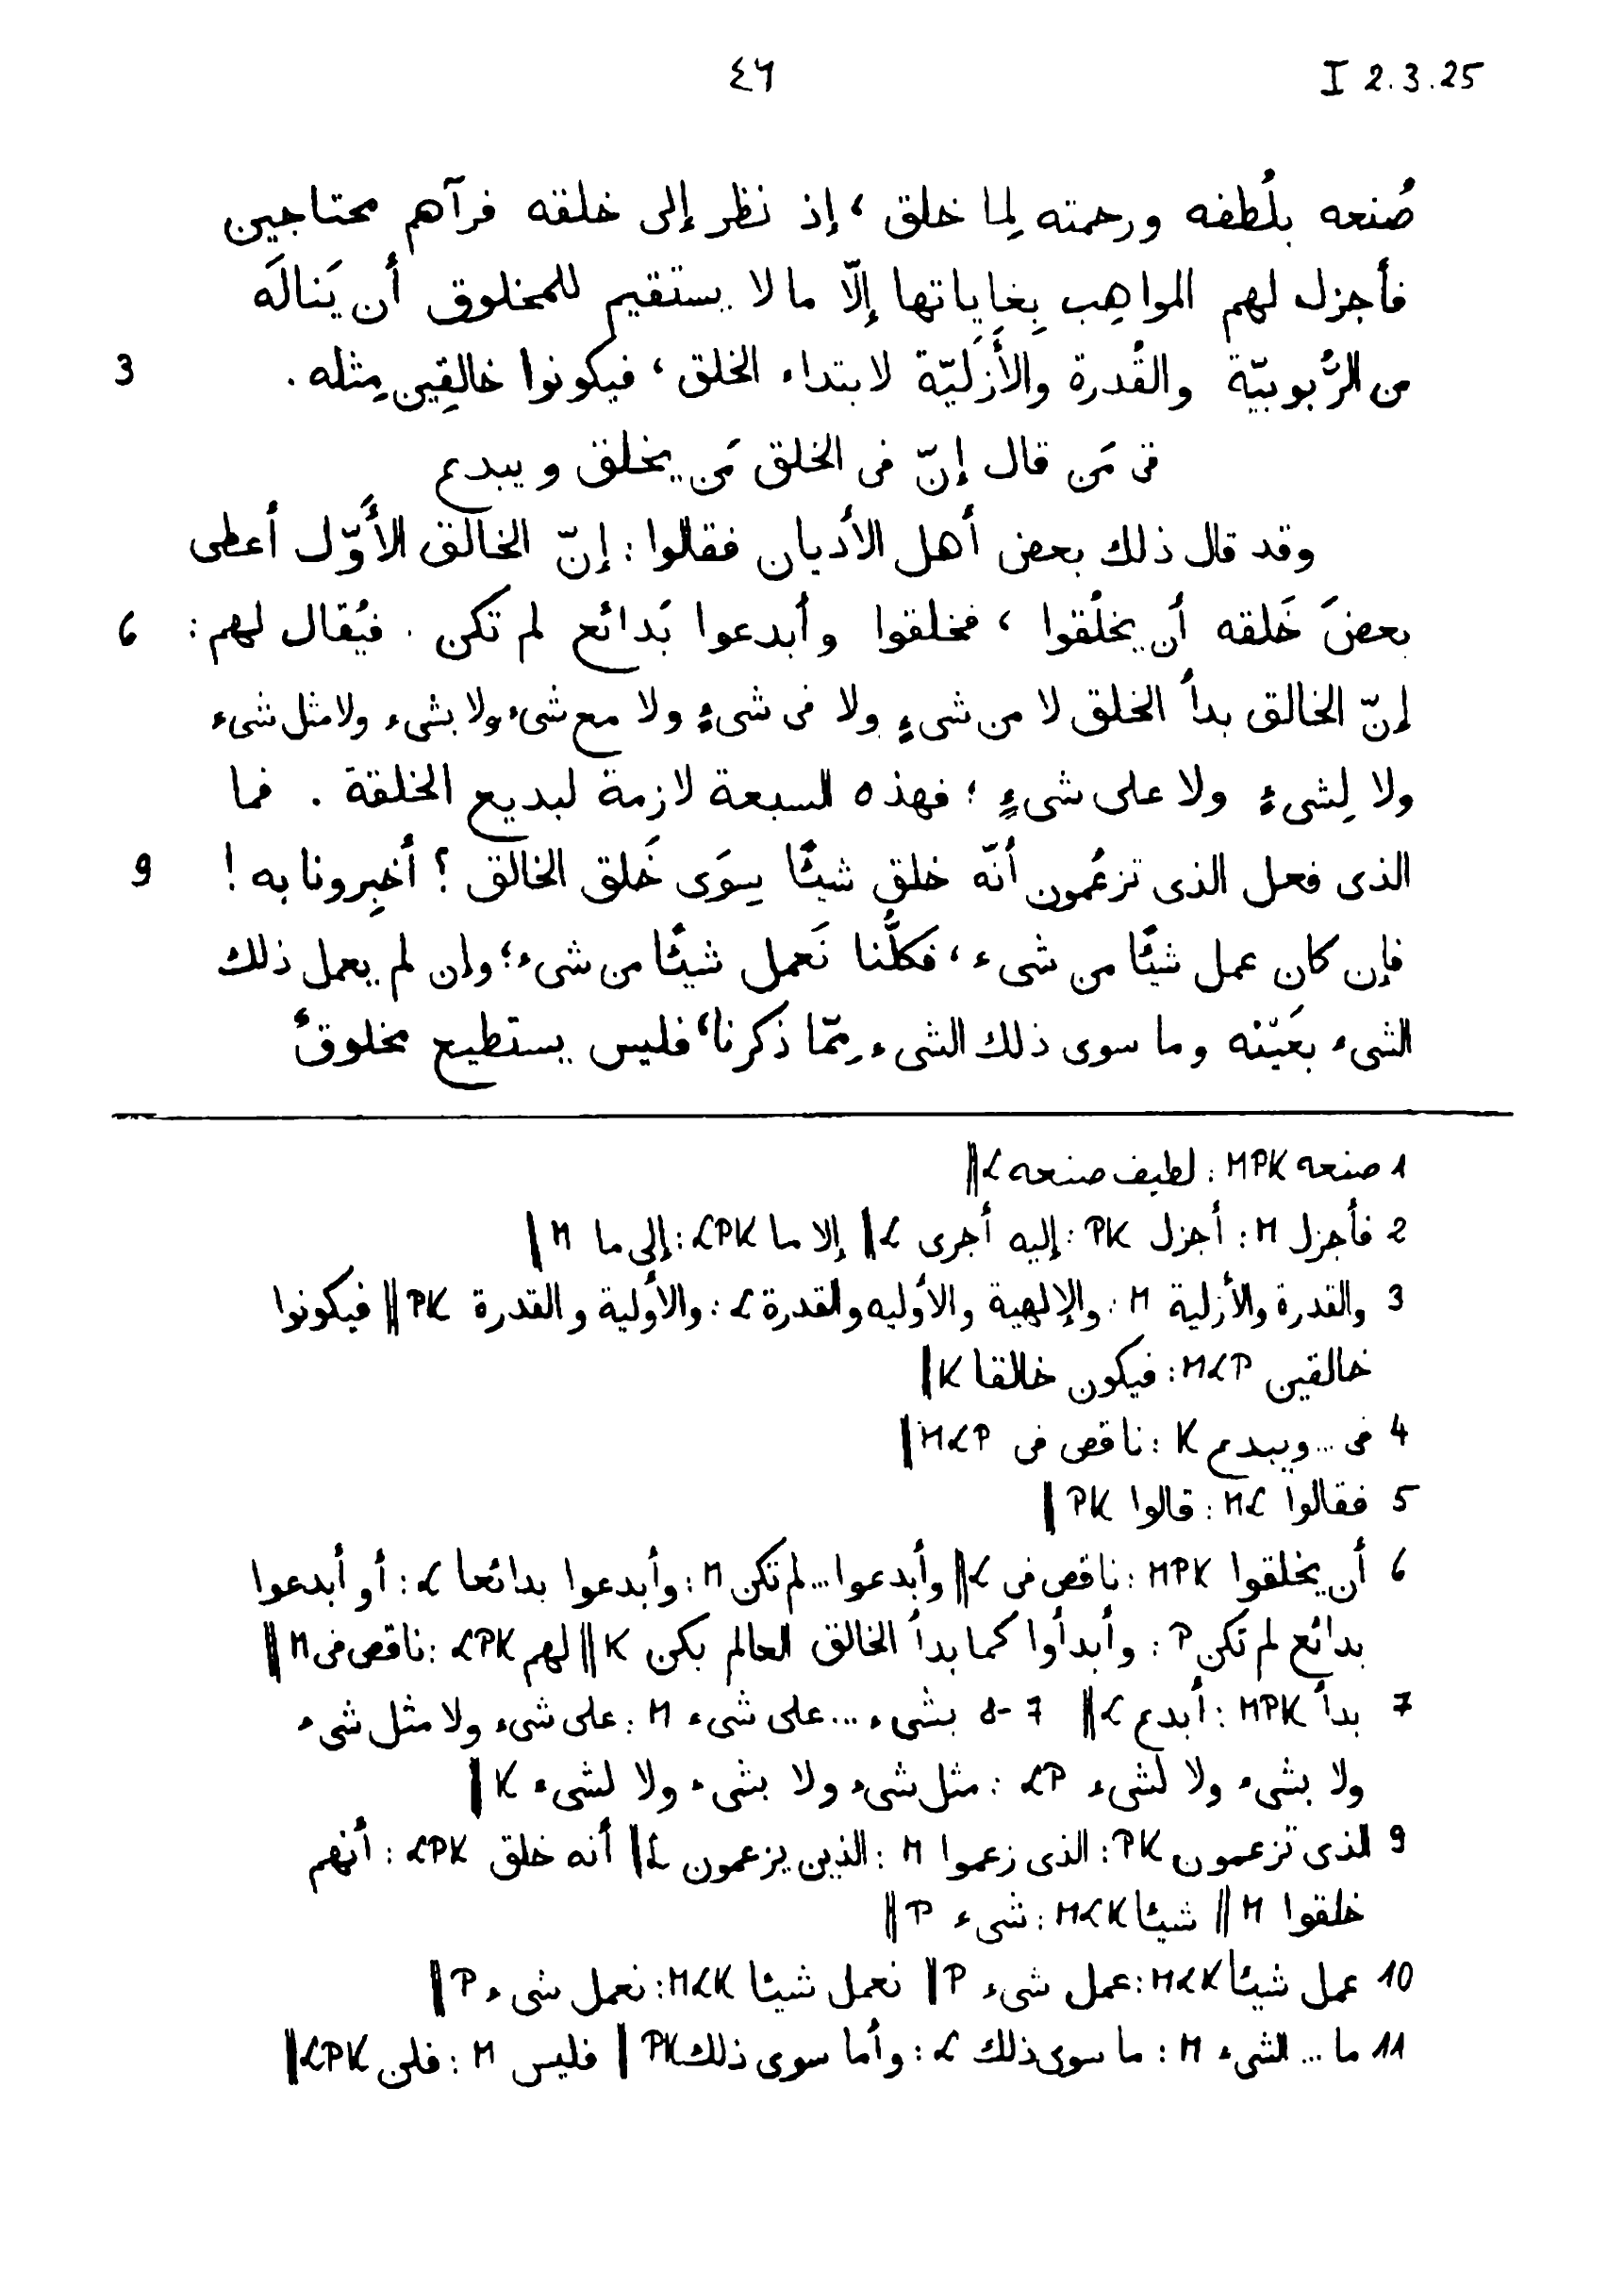 ٤٦ I 2.3.25
صُنعه بلُطفه ورحمته لِما خلق ، إذ نظر إلى خلقه فرآهم محتاجين
فأجزل لهم المواهِب بِغاياتها إلّا ما لا يستقيم للمخلوق أن يَنالَه
من الرُّبوبيّة والقُدرة والأَزَليّة لابتداء الخلق ، فيكونوا خالقِين مِثله . 3
فى مَن قال إنّ فى الخلق مَن يخلق ويبدع
وقد قال ذلك بعض أهل الأديان فقالوا : إنّ الخالق الأَوّل أعطى
بعضَ خَلقه أن يخلُقوا ، فخلقوا وأبدعوا بَدائع لم تكن . فيُقال لهم : 6
إنّ الخالق بدأ الخلق لا من شىءٍ ولا فى شىءٍ ولا مع شىء ولا بشىء ولا مثل شىء
ولا لِشىءٍ ولا على شىءٍ ؛ فهذه السبعة لازمة لبديع الخلقة . فما
الذى فعل الذى تزعُمون أنّه خلق شيئًا سِوَى خَلق الخالق ؟ أخبِرونا به ! 9
فإن كان عمل شيئًا من شىء ، فكلُّنا نَعمل شيئًا من شىء ؛ وإن لم يعمل ذلك
الشىء بعَيْنه وما سوى ذلك الشىء مِمّا ذكرنا ، فليس يستطيع مخلوقٌ
1 صنعه MPK : لطيف صنعه L ||
2 فأجزل M : أجزل PK : إليه أجرى L || إلا ما LPK : إلى ما M ||
3 والقدرة والأزلية M : والإلهية والأوليه والقدرة L : والأولية والقدرة PK || فيكونوا
خالقين MLP : فيكون خالقا K ||
4 فى ... ويبدع K : ناقص فى MLP ||
5 فقالوا ML : قالوا PK ||
6 أن يخلقوا MPK : ناقص فى L || وأبدعوا ... لم تكن M : وأبدعوا بدائعا L : أو أبدعوا
بدائع لم تكن P : وأبدأوا كما بدأ الخالق العالم بكن K || لهم LPK : ناقص فى M ||
7 بدأ MPK : أبدع L || 7-8 بشىء ... على شىء M : على شىء ولا مثل شىء
ولا بشىء ولا لشىء LP : مثل شىء ولا بشىء ولا لشىء K ||
9 الذى تزعمون PK : الذى زعموا M : الذين يزعمون L || أنه خلق LPK : أنهم
خلقوا M || شيئا MLK : شىء P ||
10 عمل شيئا MLK : عمل شىء P || نعمل شيئا MLK : نعمل شىء P ||
11 ما ... الشىء M : ما سوى ذلك L : وأما سوى ذلك PK || فليس M : فلن LPK ||